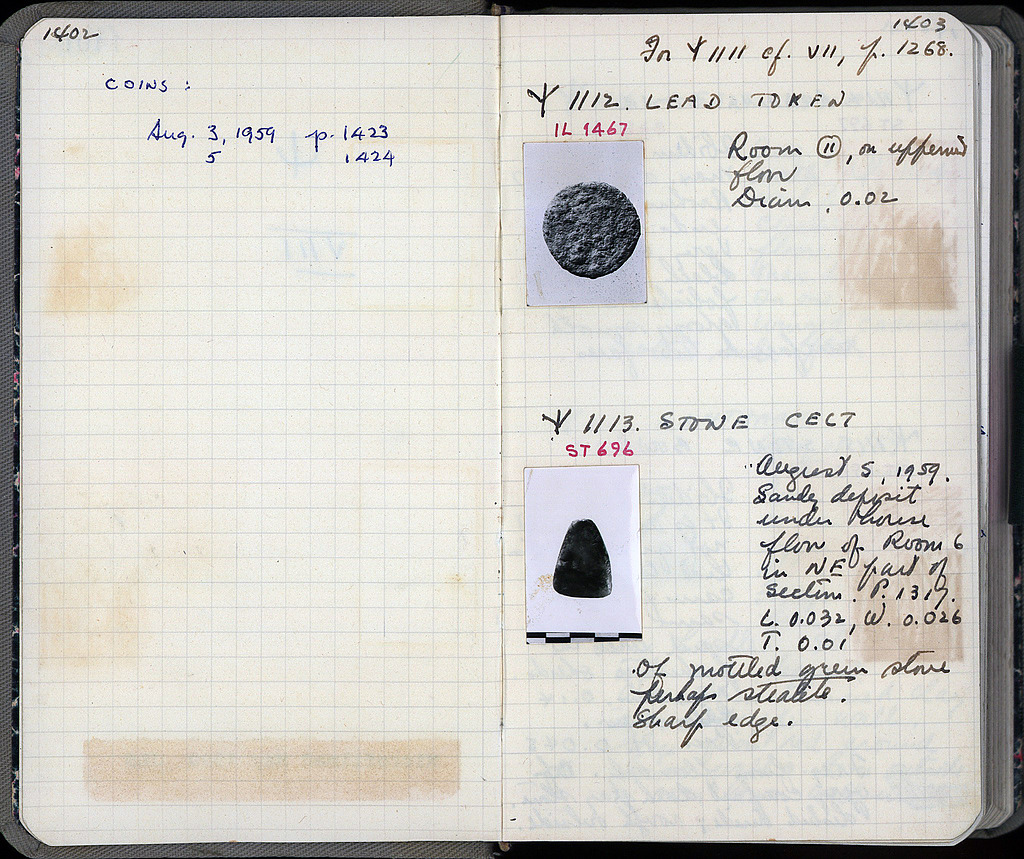 1402
COINS :
Aug. 3, 1959 p. 1423
5 1424
1403
For Ψ 1111 cf. VII, p. 1268.
Ψ 1112. LEAD TOKEN
IL 1467
Room 11, on uppermost
floor
Diam. 0.02
Ψ 1113. STONE CELT
ST 696
August 5, 1959.
Sandy deposit
under house
floor of Room 6
in NE part of
Section. P. 1317.
L. 0.032, W. 0.026
T. 0.01
Of mottled green stone
perhaps steatite.
Sharp edge.